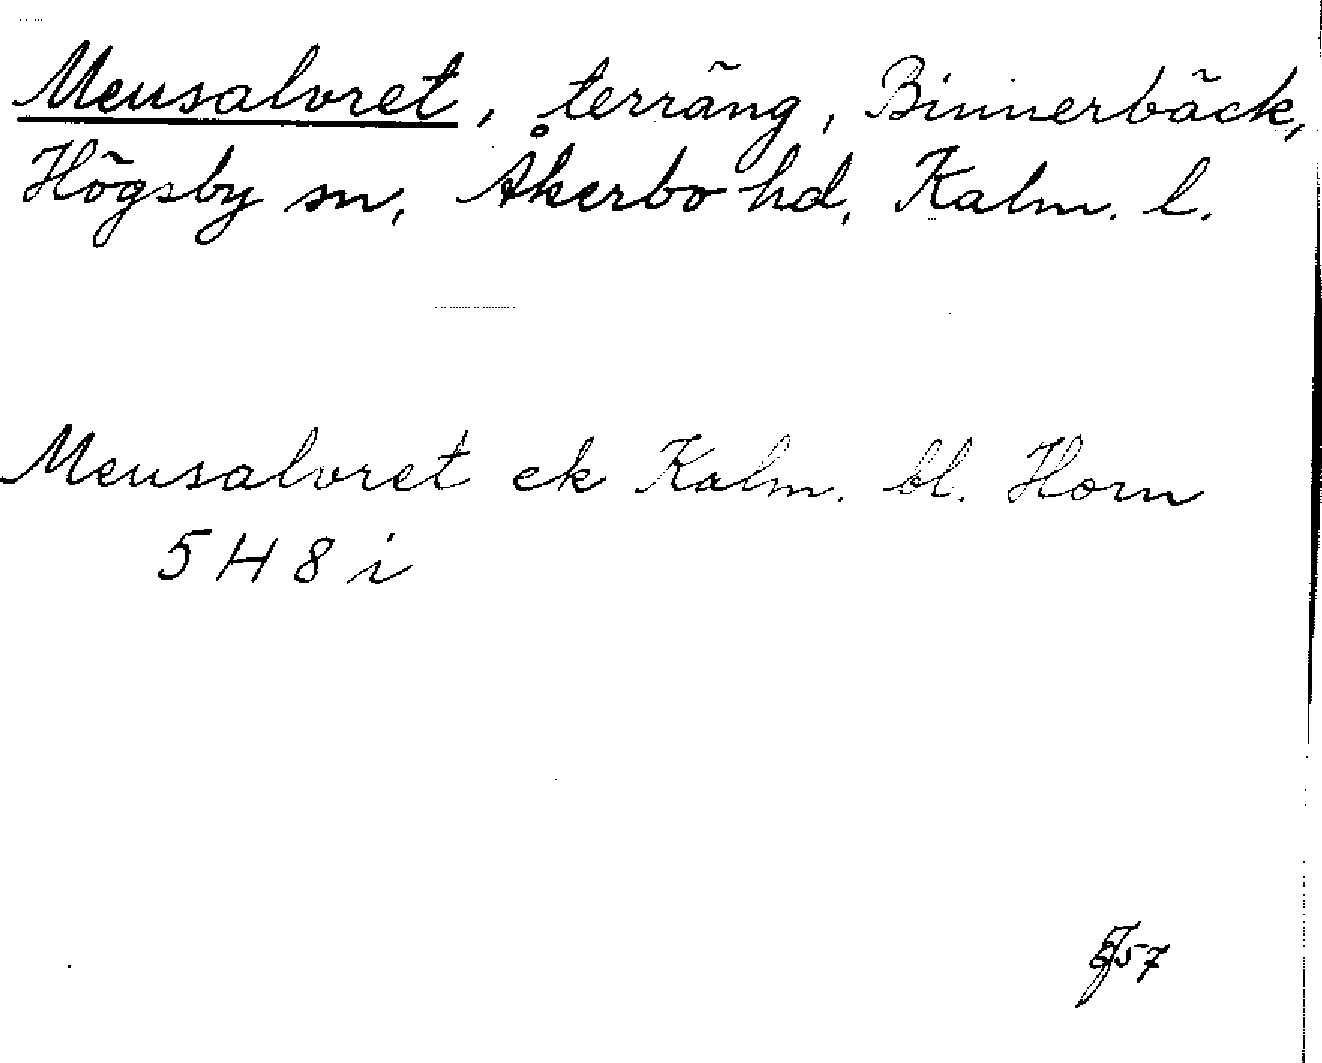 Mensalvret, terräng, Binnerbäck,
Högsby sn, Åkerbo hd, Kalm. l.
Mensalvret ek Kalm. bl. Horn
5 H 8 i
57